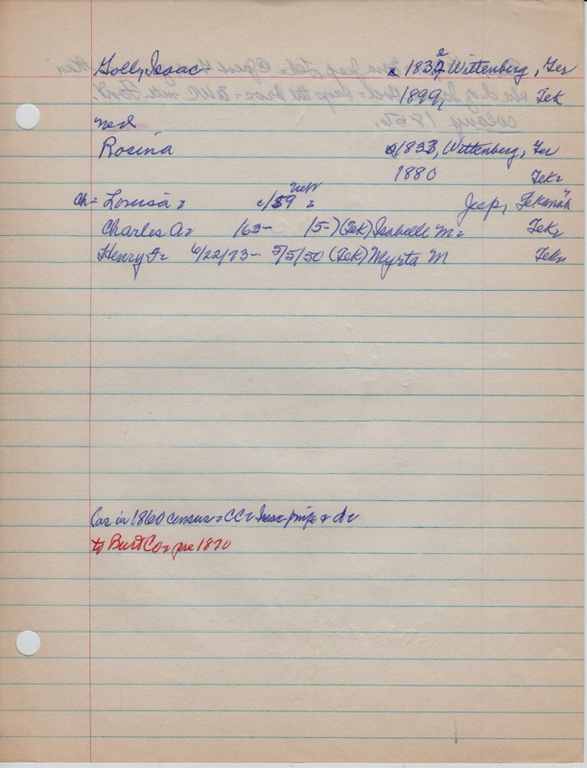 Golly, Isaac c 1832 Wittenberg, Ger
1899, Tek
med
Rosina c/1833, Wittenberg, Ger
1880 Tek
Ch= Louisa = c/59 = Jeep, Tekamah
Charles A= /63- /5-) (Tek) Isabelle M= Tek=
Henry F= 6/22/73- 5/5/50 (Tek) Myrta M Tek=
Cas in 1860 census = CC=
to Burt Co= pre 1870